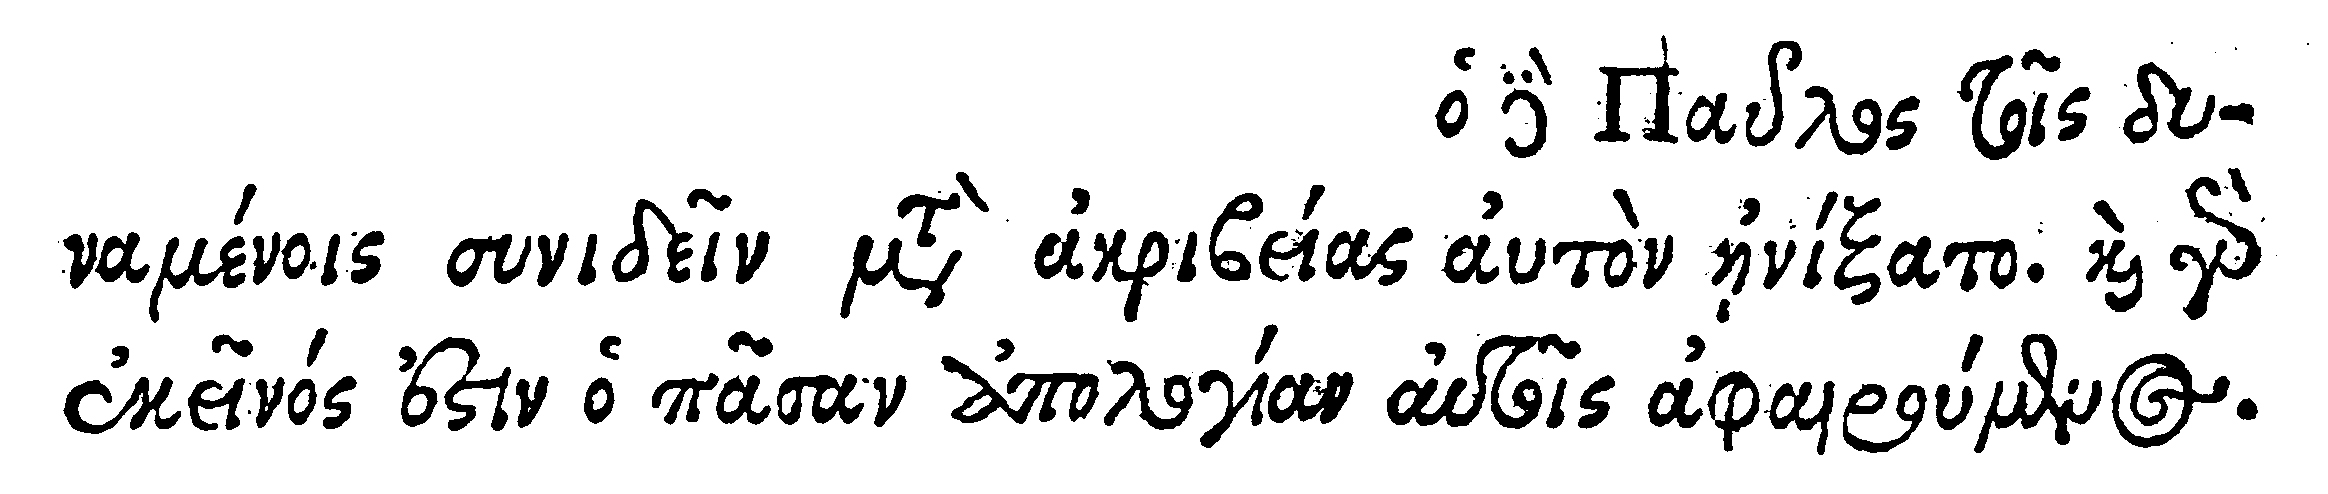 ὁ δὲ Παῦλος τοῖς δυ-
ναμένοις συνιδεῖν μετὰ ἀκριβείας αὐτὸν ἠνίξατο. καὶ γὰρ
ἐκεῖνός ἐστιν ὁ πᾶσαν ἀπολογίαν αὐτοῖς ἀφαιρούμενος.